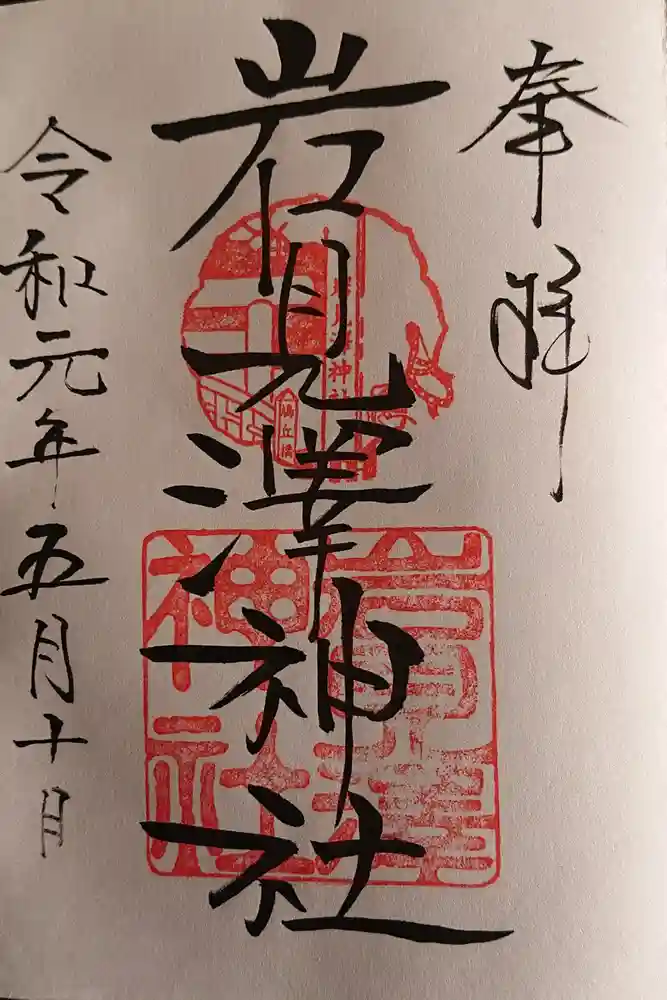 奉拝
岩見澤神社
令和元年五月十日
岩見澤神社
鳩丘橋
岩見澤神社